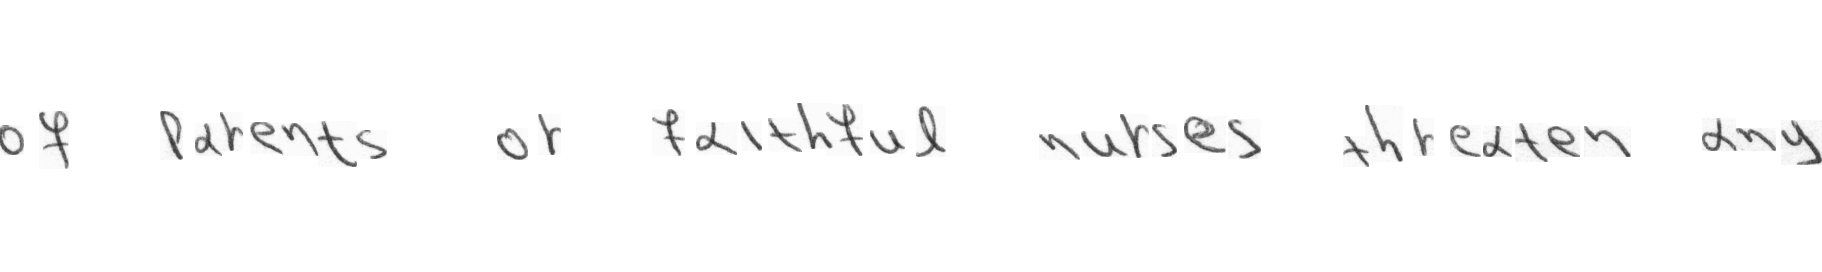 of parents or faithful nurses threaten any